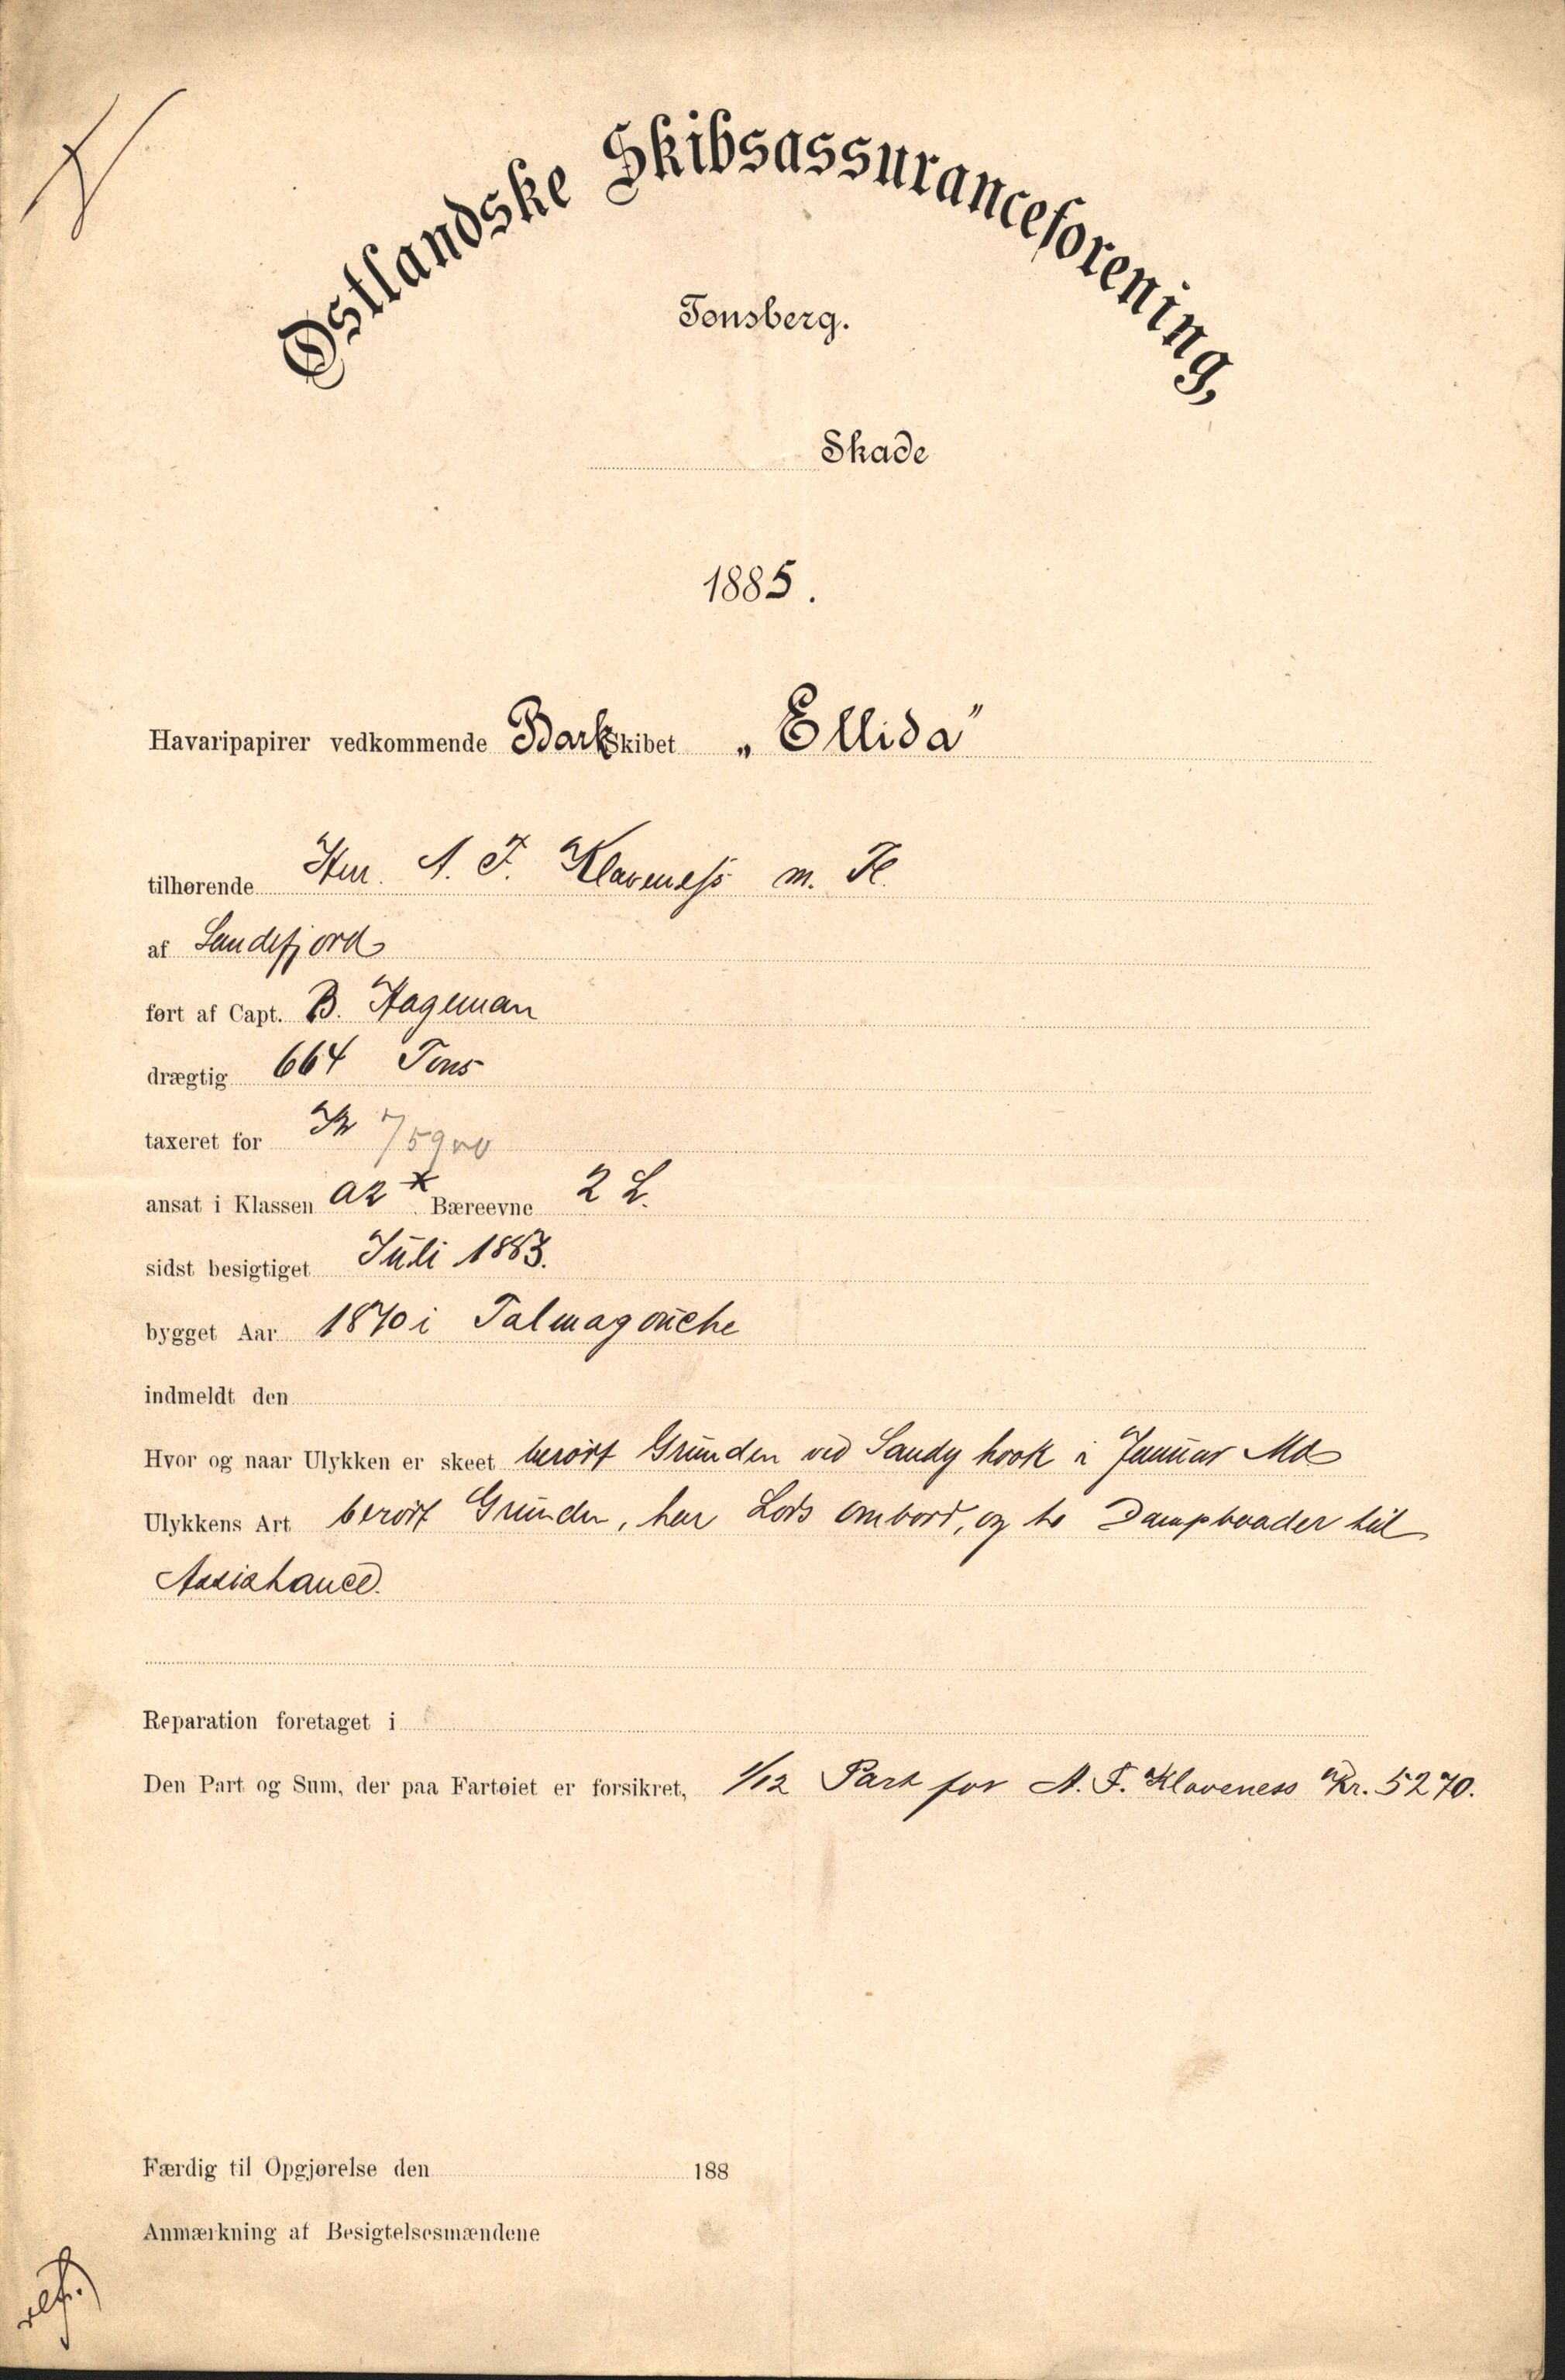 Østlandske Skibsassuranceforening,
Tønsberg.
Skade
1885.
Havaripapirer vedkommende Bark Skibet „Ellida"
tilhørende Hrr. A. F. Klaveness m. Fl.
af Sandefjord
ført af Capt. B. Hageman
drægtig 664 Tons
taxeret for Kr 75900
ansat i Klassen A2* Bæreevne 2 L.
sidst besigtiget Juli 1883.
bygget Aar 1870 i Talmagouche
indmeldt den
Hvor og naar Ulykken er skeet berørt Grunden ved Sandy hook i Januar Md
Ulykkens Art berørt Grunden, har Lods ombord, og to Dampbaader til
Assistance.
Reparation foretaget i
Den Part og Sum, der paa Fartøiet er forsikret, 1/12 Part for A. F. Klaveness Kr. 5270.
Færdig til Opgjørelse den 188
Anmærkning af Besigtelsesmændene